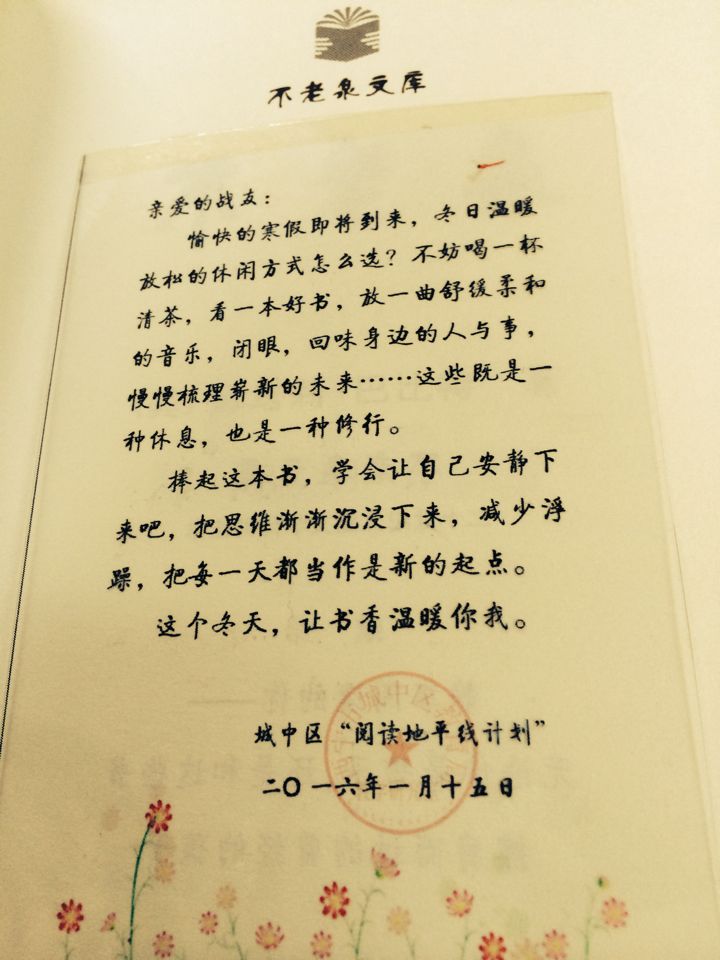 不老泉文库
亲爱的战友：
愉快的寒假即将到来，冬日温暖
放松的休闲方式怎么选？不妨喝一杯
清茶，看一本好书，放一曲舒缓柔和
的音乐，闭眼，回味身边的人与事，
慢慢梳理崭新的未来……这些既是一
种休息，也是一种修行。
捧起这本书，学会让自己安静下
来吧，把思维渐渐沉浸下来，减少浮
躁，把每一天都当作是新的起点。
这个冬天，让书香温暖你我。
城中区“阅读地平线计划”
二〇一六年一月十五日